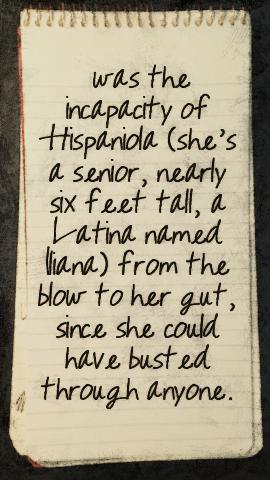 was the
incapacity of
Hispaniola (she's
a senior, nearly
six feet tall, a
Latina named
Iliana) from the
blow to her gut,
since she could
have busted
through anyone.